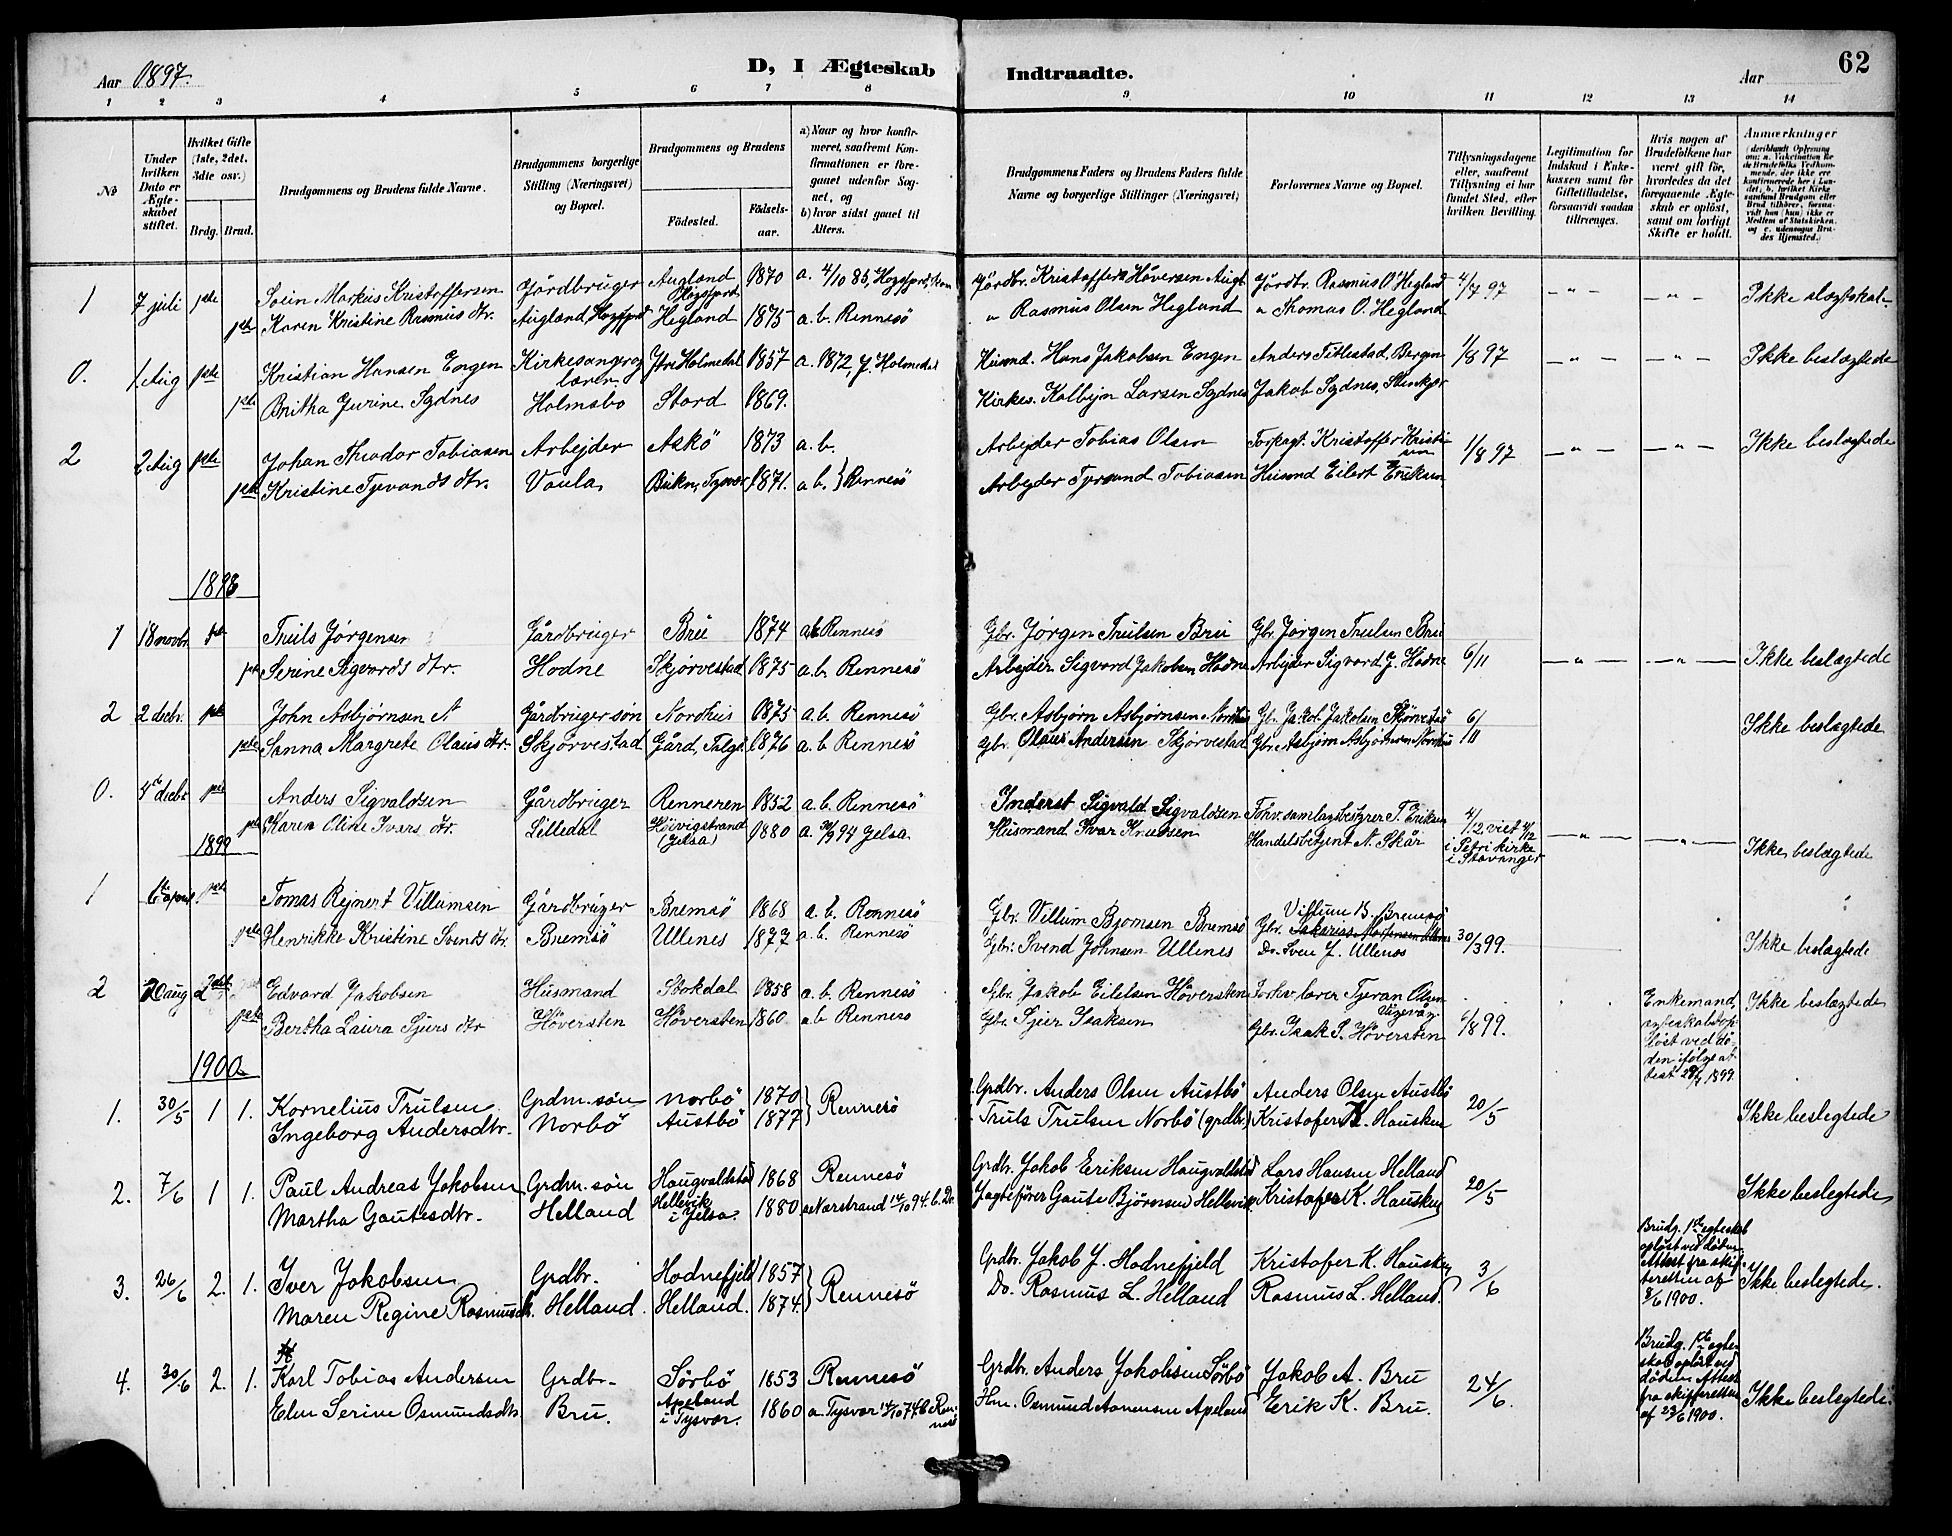 Aar 1897.
D, I Ægteskab Indtraadte.
Aar
62
1 2 3 4 5 6 7 8 9 10 11 12 13 14
No
Under hvilken Dato er Ægteskabet stiftet.
Hvilket Gifte (1ste, 2det, 3die osv.)
Brdg. Brud.
Brudgommens og Brudens fulde Navne.
Brudgommens borgerlige Stilling (Næringsvei) og Bopæl.
Brudgommens og Brudens
Födested. Födselsaar.
a) Naar og hvor konfirmeret, saafremt Konfirmationen er foregaaet udenfor Sognet, og
b) hvor sidst gaaet til Alters.
Brudgommens Faders og Brudens Faders fulde Navne og borgerlige Stillinger (Næringsvei)
Forlovernes Navne og Bopæl.
Tillysningsdagene eller, saafremt Tillysning ei har fundet Sted, efter hvilken Bevilling.
Legitimation for Indskud i Enkekassen samt for Giftetilladelse, forsaavidt saadan tiltrænges.
Hvis nogen af Brudefolkene har været gift för, hvorledes da det foregaaende Ægteskab er oplöst, samt om lovligt Skifte er holdt.
Anmærkninger (deriblandt Oplysning om: a. Vakcination Re de Brudefolks Vedkommende, der ikke ere konfirmerede her i Landet; b. hvilket Kirkesamfund Brudgom eller Brud tilhörer, forsaavidt han (hun) ikke er Medlem af Statskirken, og c. udensogns Brudes Hjemsted.)
1 7 juli 1ste Svein Markus Kristoffersen Gårdbruger Augland Högsfjord 1870 a. 4/10 85, Hogsfjord, Gårdbr. Kristoffer Håversen Augl. Gårdbr. Rasmus O. Hegland 4/7 97 - " - - " - Ikke slægtskab
1ste Karen Kristine Rasmus dtr. Augland, Hogsfjord Hegland 1875 a. b. Rennesö " Rasmus Olsen Hegland " Thomas O. Hegland
0. 1 Aug 1ste Kristian Hansen Engen Kirkesanger og lærer Ytre Holmedal 1857 a. 1872, Y. Holmedal Husmd. Hans Jakobsen Engen Anders Titlestad, Bergen 1/8 97 - " - - " - Ikke beslægtede
1ste Britha Gurine Sydnes Holmsbo Stord 1869. Kirkes. Kolbejn Larsen Sydnes Jakob Sydnes, Stenkjær
2 2 Aug 1ste Johan Theodor Tobiasen Arbejder Askö 1873 a. b. Arbejder Tobias Olsen Forpagt. Kristoffer Kristiansen 1/8 97 - " - - " - Ikke beslægtede
1ste Kristine Tyevands dtr. Vaula Bukn, Tysvær 1871. a b. } Rennesö Arbejder Tyersand Tobiasen Husmd Eilert Eriksen
1898
1 18 novbr. 1ste Truls Jørgensen Gårdbruger Bru 1874 a b Rennesö Gbr. Jørgen Trulsen Bru Gbr. Jørgen Trulsen Bru
1ste Serine Sigvards dtr. Hodne Skjørvestad 1875 a. b. Rennesö Arbejder Sigvard Jakobsen Hodne Arbejder Sigvard J. Hodne 6/11 - " - - " - Ikke beslægtede
2 2 decbr. 1ste John Asbjørnsen N Gårdbruger søn Nordhus 1875 a. b. Rennesö Gbr. Asbjørn Asbjørnsen Nordhus Gbr. Jakob Jakobsen Skörvestad 6/11 Ikke beslægtede
1ste Sanna Margrete Olaus dtr. Skjørvestad Gård, Talgö 1876 a. b Rennesö Gbr. Olaus Andersen Skjørvestad Gbr. Asbjørn Asbjørnsen Nordhus
0. 4de decbr 1ste Anders Sigvaldsen Gårdbruger Renneren 1852 a. b. Rennesö Inderst Sigvald Sigvaldsen Forbr.samlagsbestyrer T. Eriksen 4/12 viet 4/12 i Petri kirke i Stavanger - " - - " - Ikke beslægtede
1ste Karen Oline Ivers dtr. Lilledal Høivigstrand (Jelsa) 1880 a. 30/9 94 Jelsa. Husmand Ivar Knudsen Handelsbetjent N. Skår
1899
1 6te april 1ste Tomas Rejnert Villumsen Gårdbruger Bremsö 1868 a. b. Rennesö Gbr. Villum Bjørnsen Bremsö Villum B. Bremsö
1ste Henrikke Kristine Svends dtr. Bremsö Ullenes 1877 a. b. Rennesö Gbr. Svend Johnsen Ullenes Do. Sven J. Ullenes 30/3 99. Ikke beslægtede
2 20 aug 2det Edvard Jakobsen Husmand Stokdal 1858 a. b. Rennesö Gbr. Jakob Eilefsen Höversten Forhv. lærer Tjeran Olsen Ikke beslægtede
1ste Bertha Laura Sjurs dtr Höversten Höversten 1860 a b Rennesö Gbr. Sjur Isaksen Gbr. Isak S. Höversten 6/8 99.
Enkemand, ægteskabet opløst ved døden ifølge attest 29/7 1899.
1900
1. 30/5 1 1. Kornelius Trulsen Grdm. søn Norbö 1870 } Rennesö Grdbr. Anders Olsen Austbö Anders Olsen Austbö 20/5 Ikke beslegtede
Ingeborg Andersdtr. Norbö Austbö 1877 Truls Trulsen Norbö (grdbr.) Kristofer K. Hausken
2. 7/6 1 1. Paul Andreas Jakobsen Grdm. søn Haugvaldstad 1868 Rennesö Grdbr. Jakob Eriksen Haugvaldstad Lars Hansen Helland 20/5 Ikke beslegtede
Martha Gautesdtr. Helland Hellevik i Jelsa. 1880 a. Narstrand 14/10 94. b. Do. Jagtefører Gaute Bjørnsen Hellevik Kristofer K. Hausken
3. 26/6 2. 1. Iver Jakobsen Grdbr. Hodnefjeld 1857 } Rennesö Grdbr. Jakob J. Hodnefjeld Kristofer K. Hausken 3/6 Ikke beslegtede.
Maren Regine Rasmusdtr. Helland. Helland. 1874. Do. Rasmus L. Helland Rasmus L. Helland.
Brudg. 1ste egteskab opløst ved døden. Attest fra skifteretten af 8/6 1900.
4. 30/6 2. 1. Karl Tobias Andersen Grdbr. Sörbö 1853 Rennesö Grdbr. Anders Jakobsen Sörbö Jakob A. Bru 24/6. Ikke beslegtede.
Elen Serine Osmundsdtr. Bru. Apeland i Tysvær. 1860 a. Tysvær 14/10 74 b Rennesö Hm. Osmund Aanensen Apeland Erik K. Bru.
Brudg. 1ste egteskab opløst ved døden. Attest fra skifteretten af 23/6 1900.